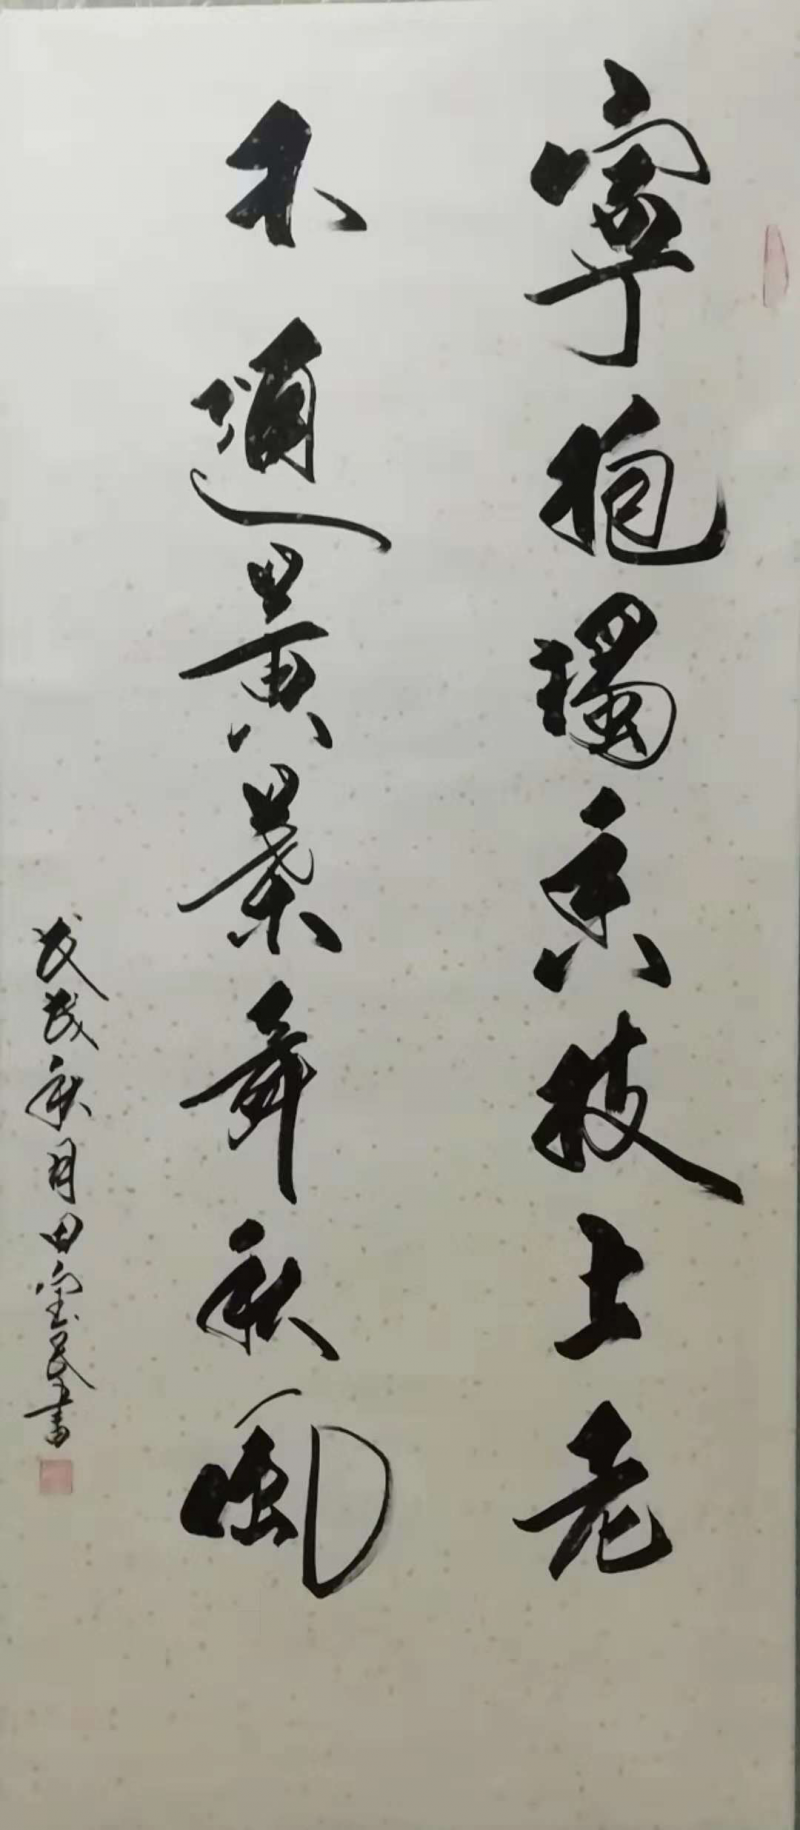 寧抱獨香枝上老
不隨黃葉舞秋風
戊戌秋月田宝民書